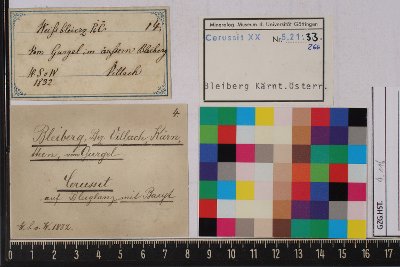 Weißbleierz Pol. 14.
Vom Gurgel im äussern Bleiberg
H. S. o W Villach
1832
Mineralog. Museum d. Universität Göttingen
Cerussit XX Nr. 5.21:33.
266
Bleiberg Kärnt. Österr.
4.
Bleiberg, Villach, Kärn,
then, Gurgel
Cerussit
auf Bleiglanz mit Baryt
1832.
GZG HST.
0 1 2 3 4 5 6 7 8 9 10 11 12 13 14 15 16 17